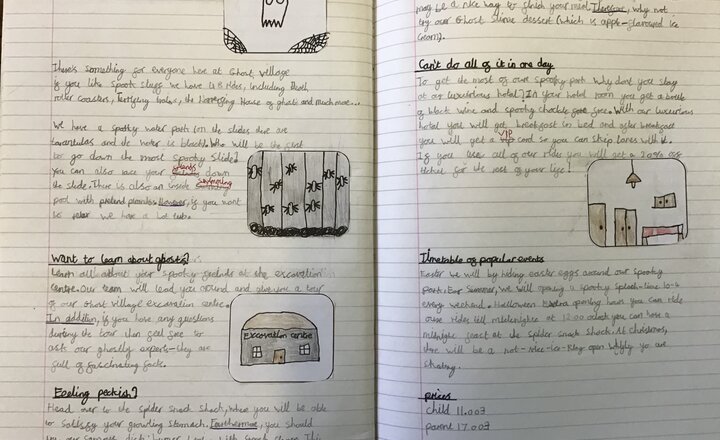 There's something for everyone here at Ghost Village
if you like spooky stuff we have 18 rides, including Death
roller coasters, terrifying trains, the Horrorfying House of ghosts and much more...
We have a spooky water park (on the slides there are
tarantulas and the water is black). Who will be the first
to go down the most Spooky Slide?
you can also race your down
the slide. There is also an inside swimming
pool with pretend piranhas. However, if you want
to relax we have a hot tub.
Want to learn about ghosts?
Learn all about your spooky at the excavation
centre. Our team will lead you around and give you a tour
of our Ghost village excavation centre.
In addition, if you have any questions
during the tour then feel free to
ask our ghostly experts-they are
full of fascinating facts.
Excavation centre
Feeling peckish?
Head over to the spider snack shack, where you will be able
to satisfy your growling stomach. Furthermore, you should
try our
may be a nice way to finish your meal. Therefore, why not
try our Ghost Slime dessert (which is apple-flavoured ice
cream).
Can't do all of it in one day
To get the most of our spooky park why don't you stay
at our luxurious hotel? In your hotel room you get a bottle
of black wine and spooky chocolate free. With our luxurious
hotel you will get breakfast in bed and after breakfast
you will get a VIP card so you can skip lanes with it.
If you use all of our rides you will get a 20% off
ticket for the rest of your life!
Timetable of popular events
Easter we will by hiding easter eggs around our spooky
park. For Summer, we will opening a spooky splash-
every weekend. Halloween opening hours you can ride
our rides till at 12:00 you can have a
midnight feast at the spider snack shack. At christmas,
there will be a open you are
skating.
prices
child 11.00
parent 17.00